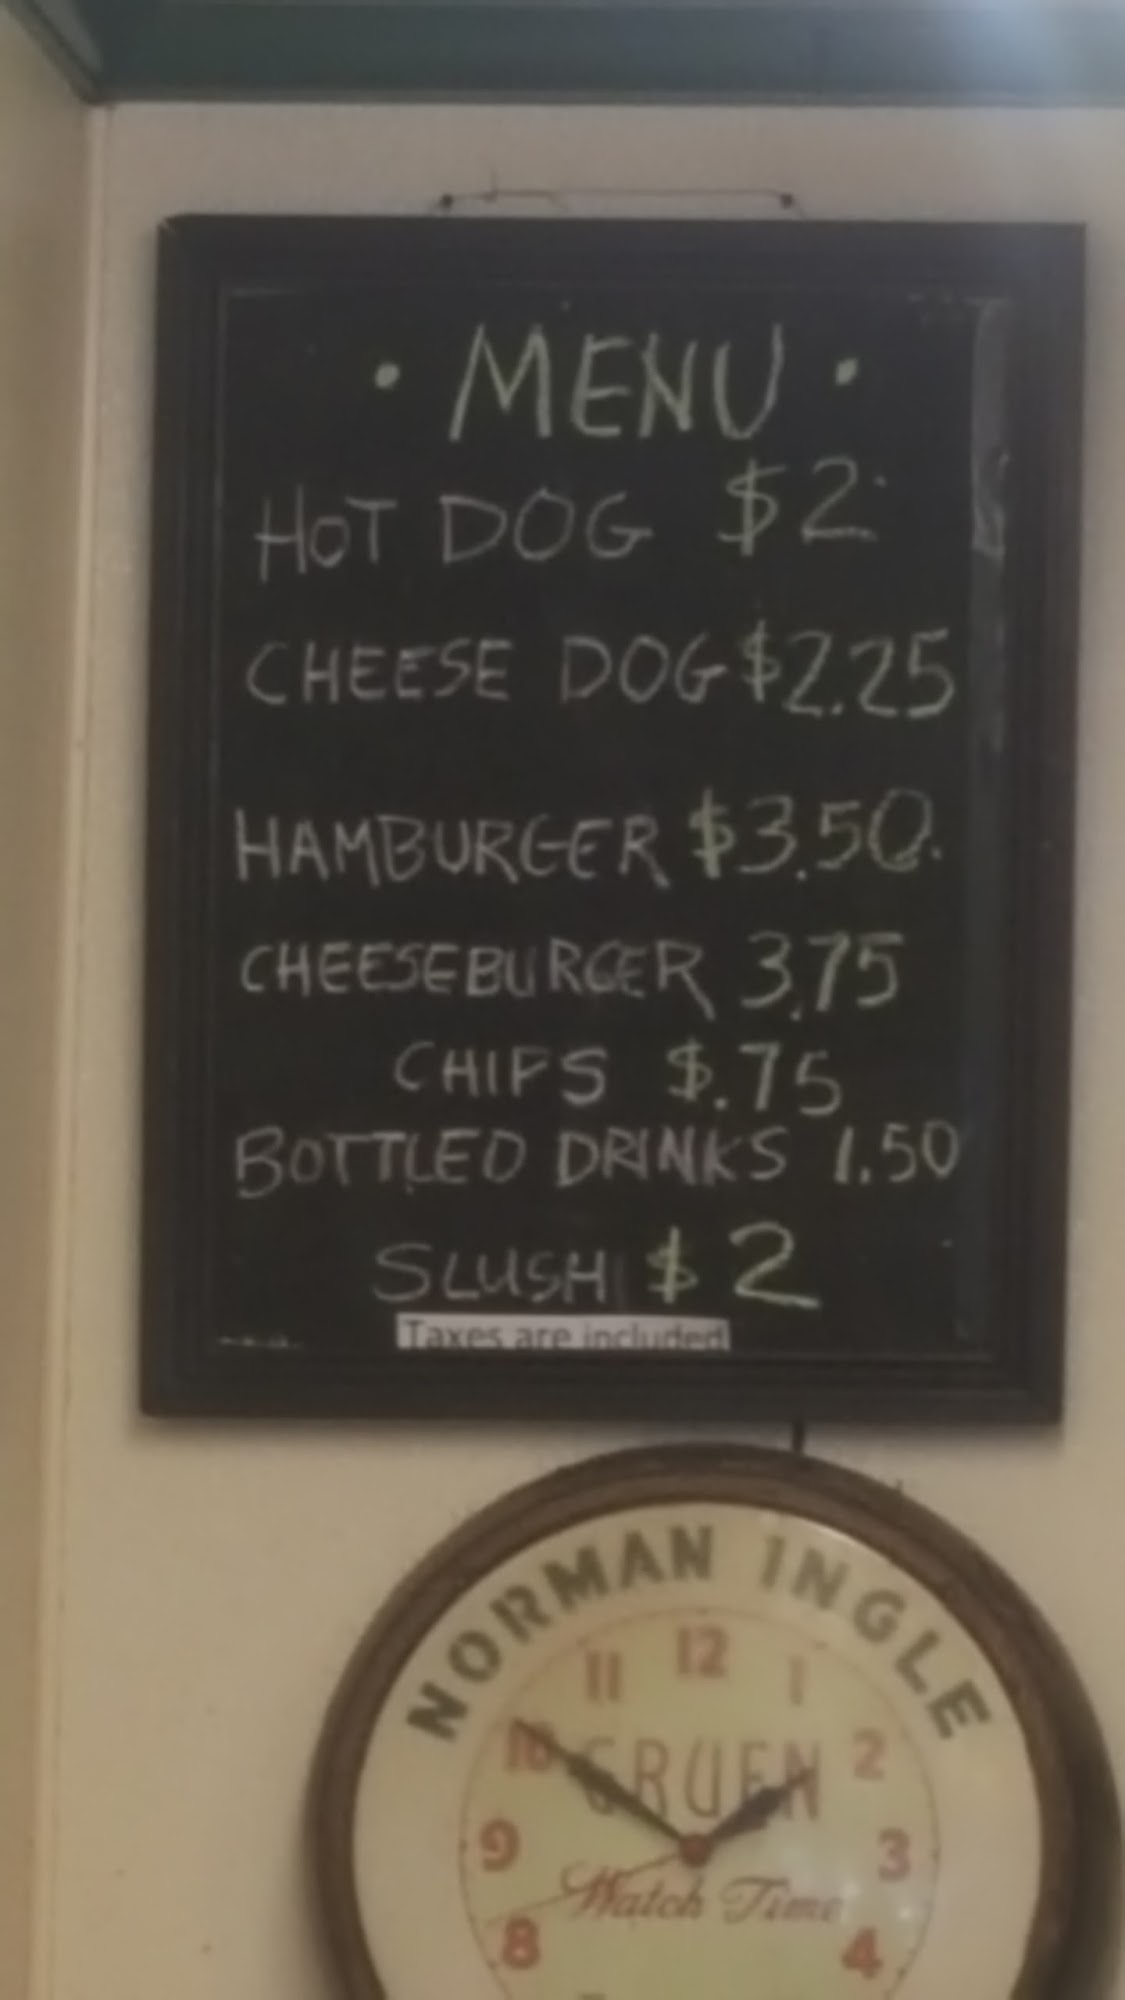 • MENU •
HOT DOG $2
CHEESE DOG $2.25
HAMBURGER $3.50
CHEESEBURGER 3.75
CHIPS $.75
BOTTLED DRINKS 1.50
SLUSH $2
Taxes are included
NORMAN INGLE
12
11 1
10 2
GRUEN
9 3
Watch Time
8 4